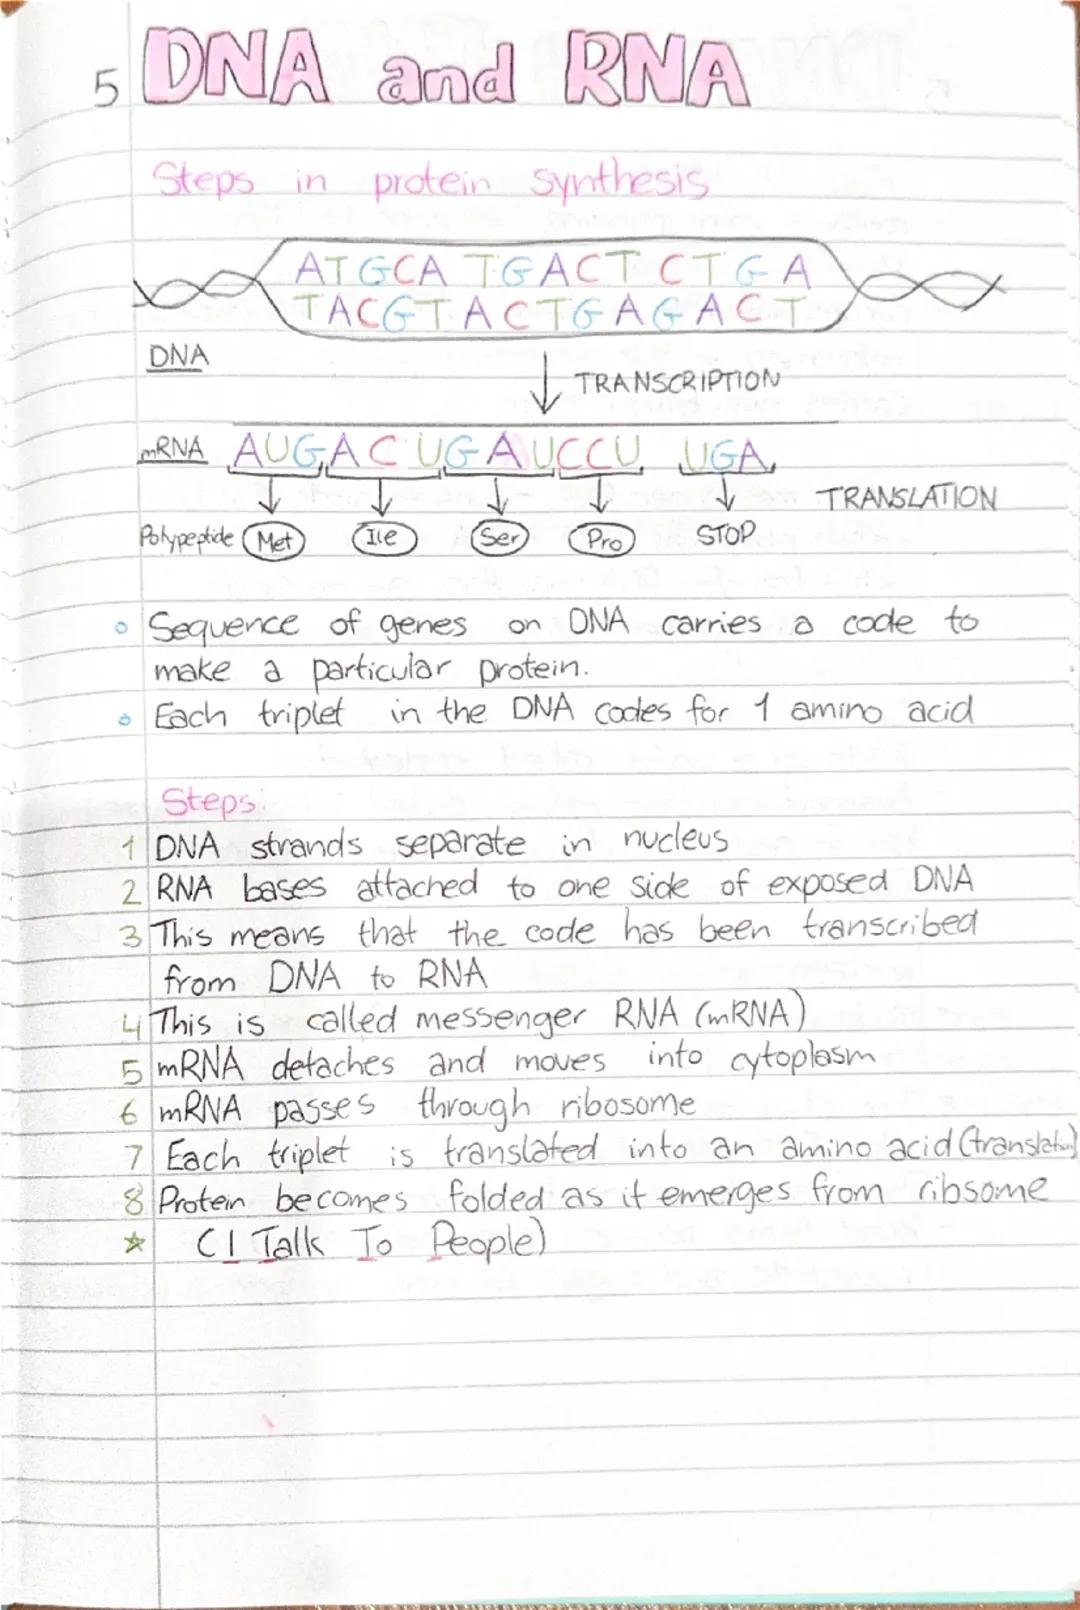 5 DNA and RNA
Steps in protein synthesis
ATGCA TGACT CTGA
TACGTACTGAGACT
DNA
TRANSCRIPTION
mRNA AUGACUGAUCCU UGA
TRANSLATION
Polypeptide Met Ile Ser Pro STOP
Sequence of genes on DNA carries a code to
make a particular protein.
Each triplet in the DNA codes for 1 amino acid
Steps:
1 DNA strands separate in nucleus
2 RNA bases attached to one side of exposed DNA
3 This means that the code has been transcribed
from DNA to RNA
4 This is called messenger RNA (mRNA)
5 mRNA detaches and moves into cytoplasm
6 mRNA passes through ribosome
7 Each triplet is translated into an amino acid (translation)
8 Protein becomes folded as it emerges from ribsome
☆ (I Talk To People)